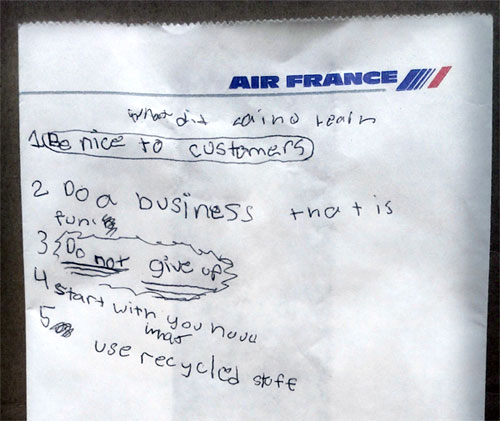 AIR FRANCE
what did caino leain
1 Be nice to customers
2 Do a business that is
fun.
3 Do not give up
4 start with you have
what
5 use recycled stofe